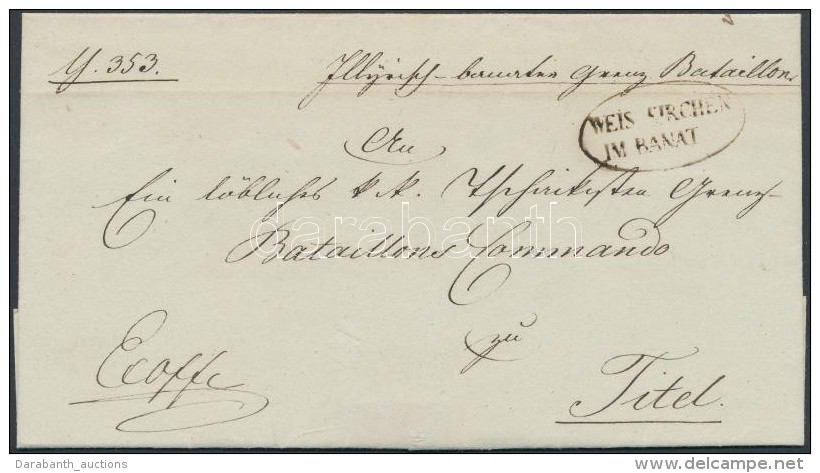 N. 353.
Illÿrisch-banater Grenz Bataillon
WEIS KIRCHEN
IM BANAT
An
Ein löbliches k. k. Tschaikisten Grenz-
Bataillons Commando
darabanth
zu
Exoffo
Titel.
Darabanth_auctions
delcampe.net